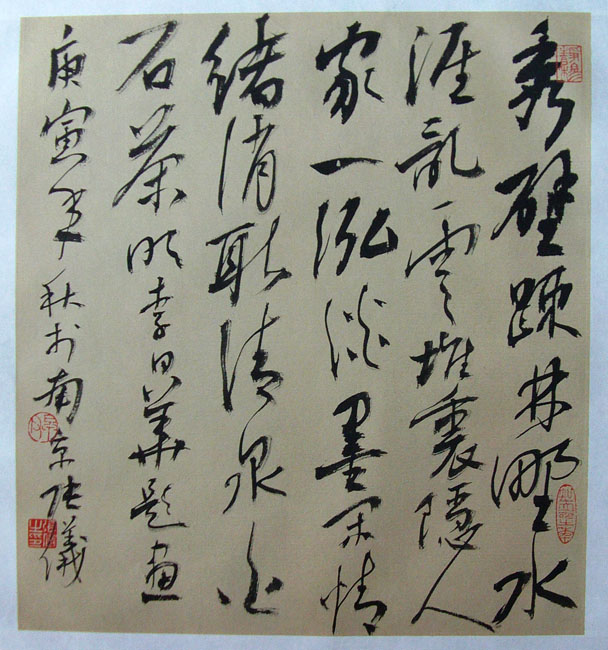 秀壁踈林野水
涯乱雲堆裏隱人
家一泓淡墨閑情
緒消取清泉白
石茶 明李日華題畫
庚寅年秋於南京張儀